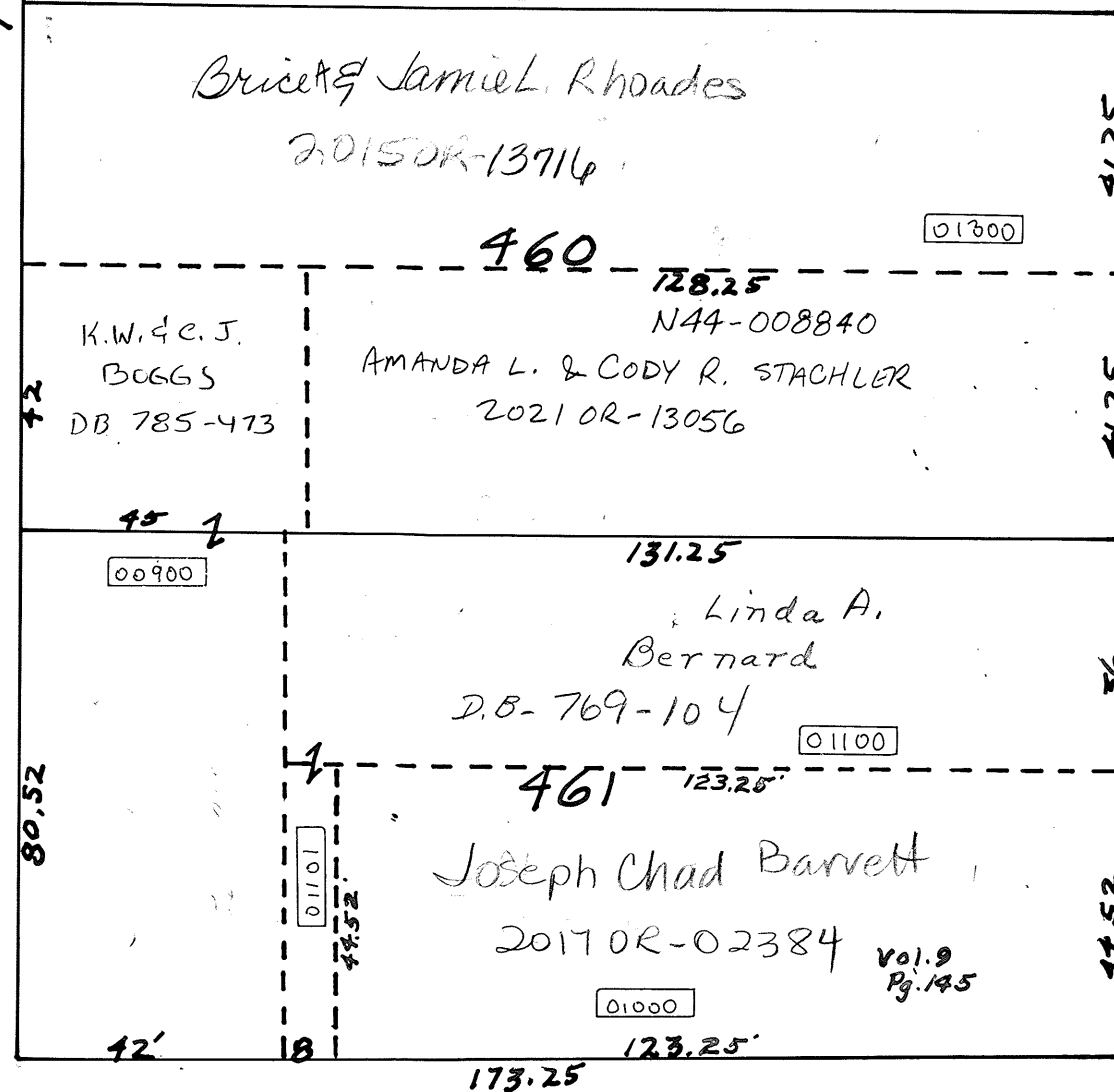 Brice A & Jamie L. Rhoades
2015OR-13716
01300
460
128.25
N44-008840
K.W. & C. J.
BOGGS
DB 785-473
42
AMANDA L. & CODY R. STACHLER
2021 OR-13056
45
131.25
00900
Linda A.
Bernard
D.B- 769-104
01100
80,52
461
123.25'
01101
44.52'
Joseph Chad Barrett
2017 OR-02384
Vol.9
Pg.145
01000
44.52
42'
8
123.25'
173.25